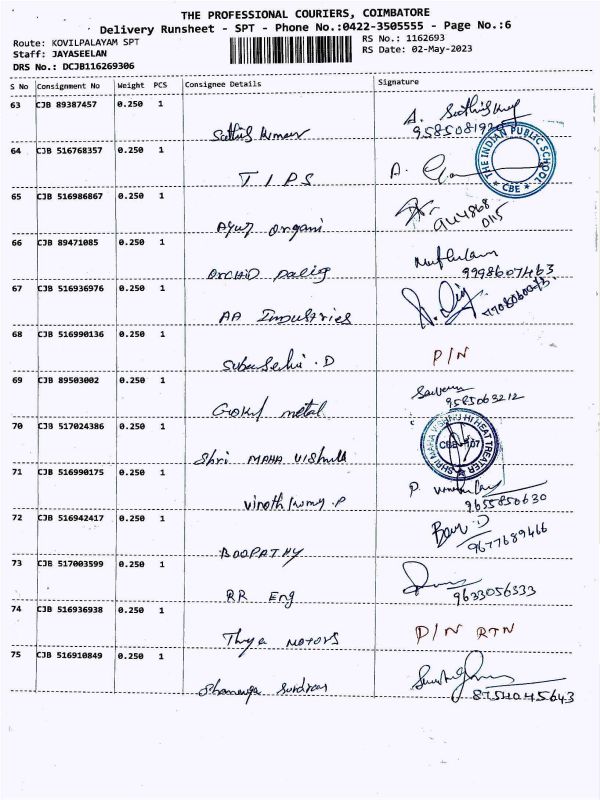 THE PROFESSIONAL COURIERS, COIMBATORE
Delivery Runsheet - SPT - Phone No.:0422-3505555 - Page No.:6
Route: KOVILPALAYAM SPT
RS No.: 1162693
Staff: JAYASEELAN
RS Date: 02-May-2023
DRS No.: DCJB116269306
S No Consignment No Weight PCS Consignee Details Signature
63 CJB 89387457 0.250 1
A. Sathish
Sathish kumar
64 CJB 516768357 0.250 1
THE INDIAN PUBLIC SCHOOL
* CBE *
A.
T I P S
65 CJB 516986867 0.250 1
944868
0115
Ayur organi
66 CJB 89471085 0.250 1
9998607463
ORCHID
67 CJB 516936976 0.250 1
AA Industries
68 CJB 516990136 0.250 1
P/N
D
69 CJB 89503002 0.250 1
9585063212
Gokul metal
70 CJB 517024386 0.250 1
SHRI MAHA VISHNU HI HEAT TREATER
Shri MAHA Vishnu
71 CJB 516990175 0.250 1
P.
9655850630
Vinoth kumar .P
72 CJB 516942417 0.250 1
D
9677689466
BOOPATHY
73 CJB 517003599 0.250 1
9633056333
RR Eng
74 CJB 516936938 0.250 1
D/N RTN
MOTORS
75 CJB 516910849 0.250 1
8754045643